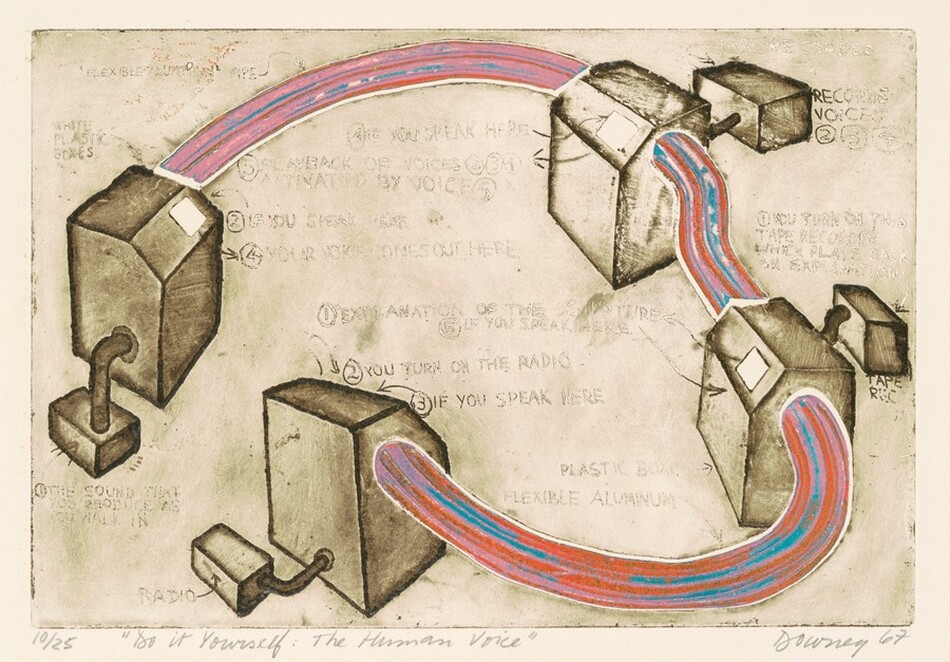 "FLEXIBLE ALUMINUM" PIPE
WHITE
PLASTIC
BOXES
④ IF YOU SPEAK HERE
⑤ PLAYBACK OF VOICES
ACTIVATED BY VOICE
RECORDS
VOICES
② ③ ④
② IF YOU SPEAK HERE
④ YOUR VOICE COMES OUT HERE
① YOU TURN ON THIS
TAPE RECORDER
WHICH PLAYS BACK
① EXPLANATION OF THE
IF YOU SPEAK HERE
② YOU TURN ON THE RADIO
③ IF YOU SPEAK HERE
TAPE
REC
PLASTIC BOX
FLEXIBLE ALUMINUM
① THE SOUND THAT
YOU PRODUCE AS
YOU WALK IN
RADIO
10/25 "Do it Yourself: The Human Voice" Downey 67